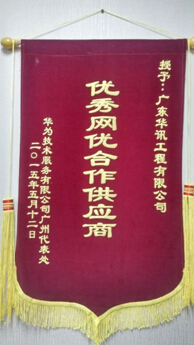 授予：广东华讯工程有限公司
优秀网优合作供应商
华为技术服务有限公司广州代表处
二〇一五年五月十二日